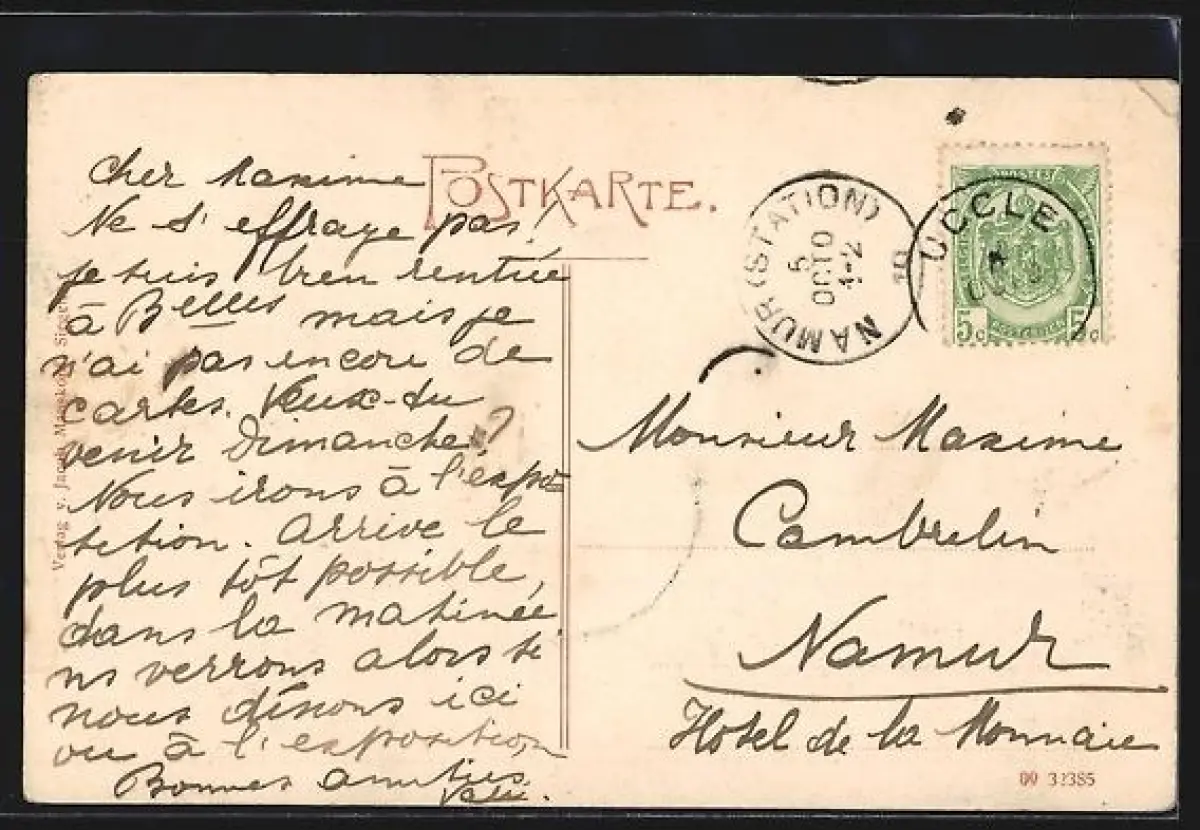 Cher Maxime
Ne s'effraye pas!
je suis bien rentrée
à Belles mais je
n'ai pas encore de
cartes. Veux-du
venir Dimanche?
Nous irons à l'expo
sition. Arrive le
plus tôt possible,
dans la matinée
ns verrons alors si
nous dînons ici
ou à l'exposition
Bonnes amitiés
POSTKARTE.
NAMUR (STATION)
5
OCT 10
1-2
UCCLE
10
5c 5c
Monsieur Maxime
Cambrelin
Namur
Hotel de la Monnaie
09 32385
Verlag v. Jacob